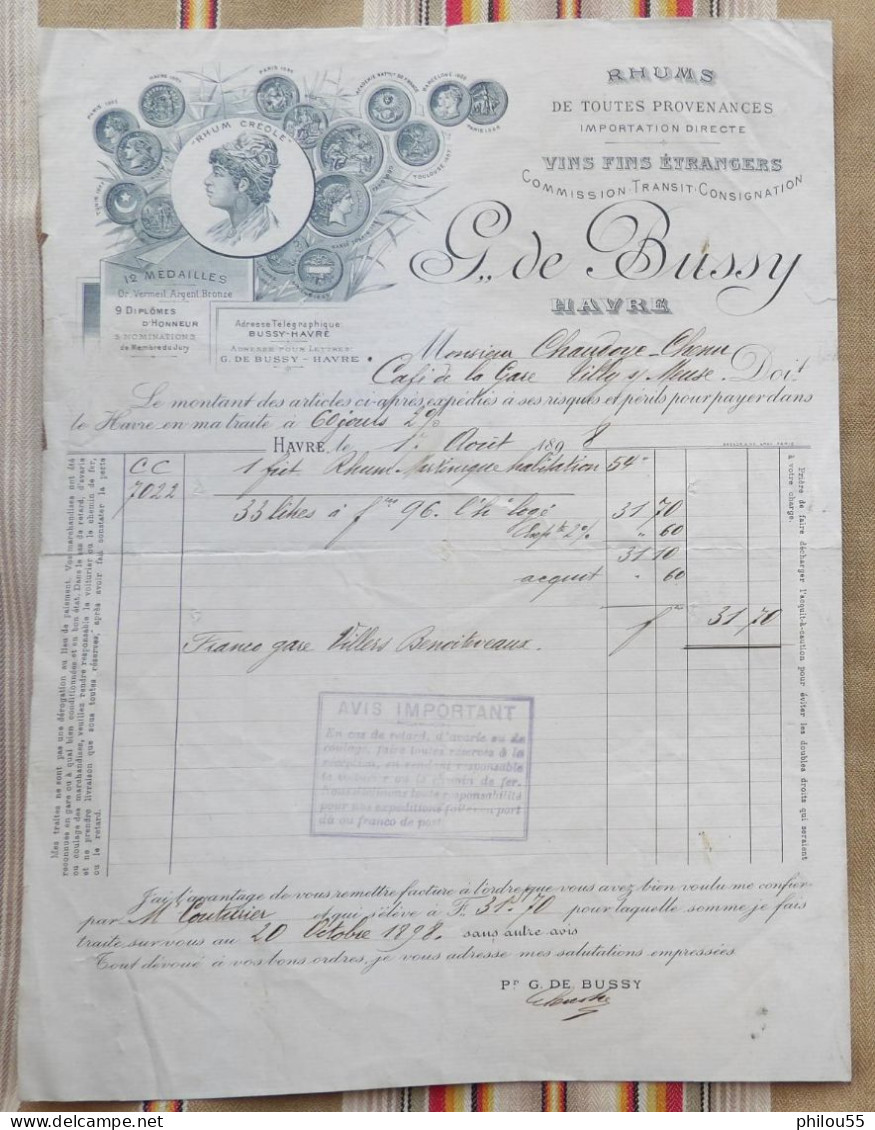 RHUMS
DE TOUTES PROVENANCES
IMPORTATION DIRECTE
VINS FINS ÉTRANGERS
COMMISSION·TRANSIT·CONSIGNATION
G. de Bussy
HAVRE
"RHUM CREOLE"
12 MÉDAILLES
Or. Vermeil. Argent. Bronze
9 DIPLÔMES
D'HONNEUR
NOMINATIONS
de Membre du Jury
Adresse Télégraphique
BUSSY-HAVRE
ADRESSE POUR LETTRES
G. DE BUSSY - HAVRE
Monsieur Chaudoye-
Café de la Gare Tilly s/ Meuse. Doit
Le montant des articles ci-après, expédiés à ses risques et périls pour payer dans
le Havre en ma traite à 60 jours 2%
HAVRE, le 17 Août 1898
CC 1 fût Rhum Martinique habitation 54°
7022
33 litres à f 96. l'h logé 31 70
2% " 60
31 10
acquit " 60
f 31 70
Franco gare Villers Benoitevaux.
AVIS IMPORTANT
En cas de retard, d'avarie ou de
coulage, faire toutes réserves à la
réception, en rendant responsable
le voiturier ou le chemin de fer.
toute responsabilité
pour nos expéditions faites en port
dû ou franco de port
Mes traites ne sont pas une dérogation au lieu de paiement. Vos marchandises ont été
reconnues en gare ou à quai bien conditionnées et en bon état. Dans le cas de retard, d'avarie
ou coulage des marchandises, veuillez rendre responsable le voiturier ou le chemin de fer,
et ne prendre livraison que sous toutes réserves, après avoir fait constater la perte
ou le retard.
Prière de faire décharger l'acquit-à-caution pour éviter les doubles droits qui seraient
à votre charge.
J'ai l'avantage de vous remettre facture à l'ordre que vous avez bien voulu me confier
par M Couturier et qui s'élève à F. 31.70 pour laquelle somme je fais
traite sur vous au 20 Octobre 1898. sans autre avis
Tout dévoué à vos bons ordres, je vous adresse mes salutations empressées.
Pr G. DE BUSSY
philou55